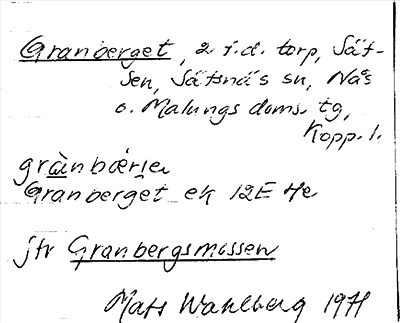 Granberget, 2 f.d. torp, Sät-
sen, Sätsnäs sn, Nås
o. Malungs doms. tg,
Kopp. l.
grànbœ́rje
Granberget ek 12E He
jfr Granbergsmossen
Mats Wahlberg 1971